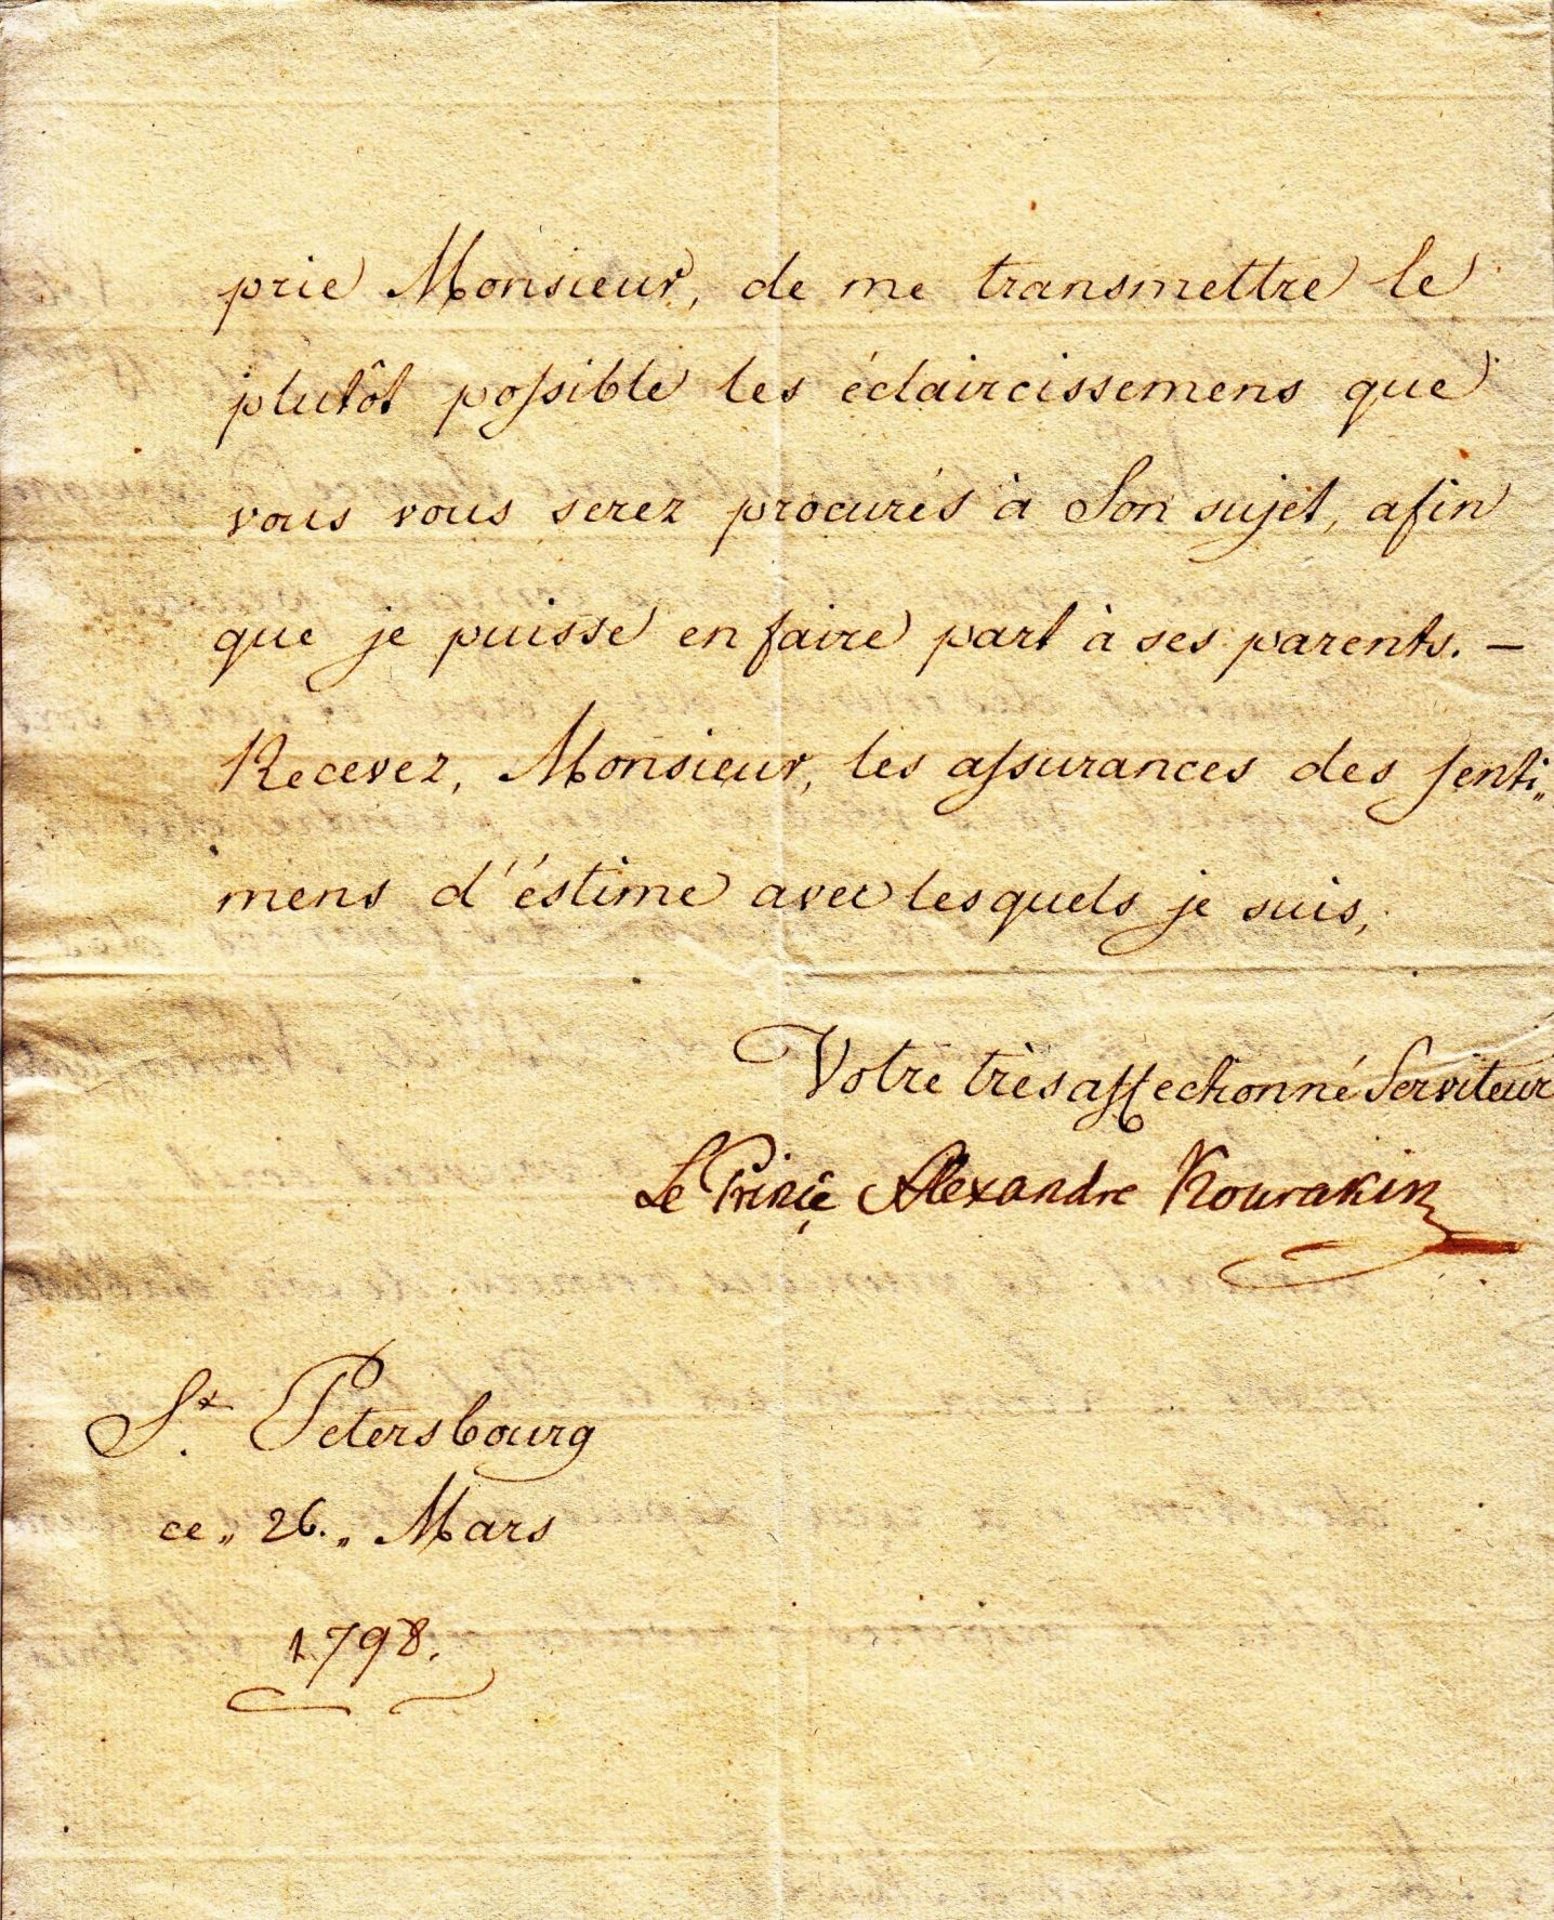 prie Monsieur, de me transmettre le
plutôt possible les éclaircissemens que
vous vous serez procurés à Son sujet, afin
que je puisse en faire part à ses parents. —
Recevez, Monsieur, les assurances des senti„
mens d'éstime avec lesquels je suis,
Votre très affectionné Serviteur
Le Prince Alexandre Kourakin
St. Petersbourg
ce „ 26. „ Mars
1798.